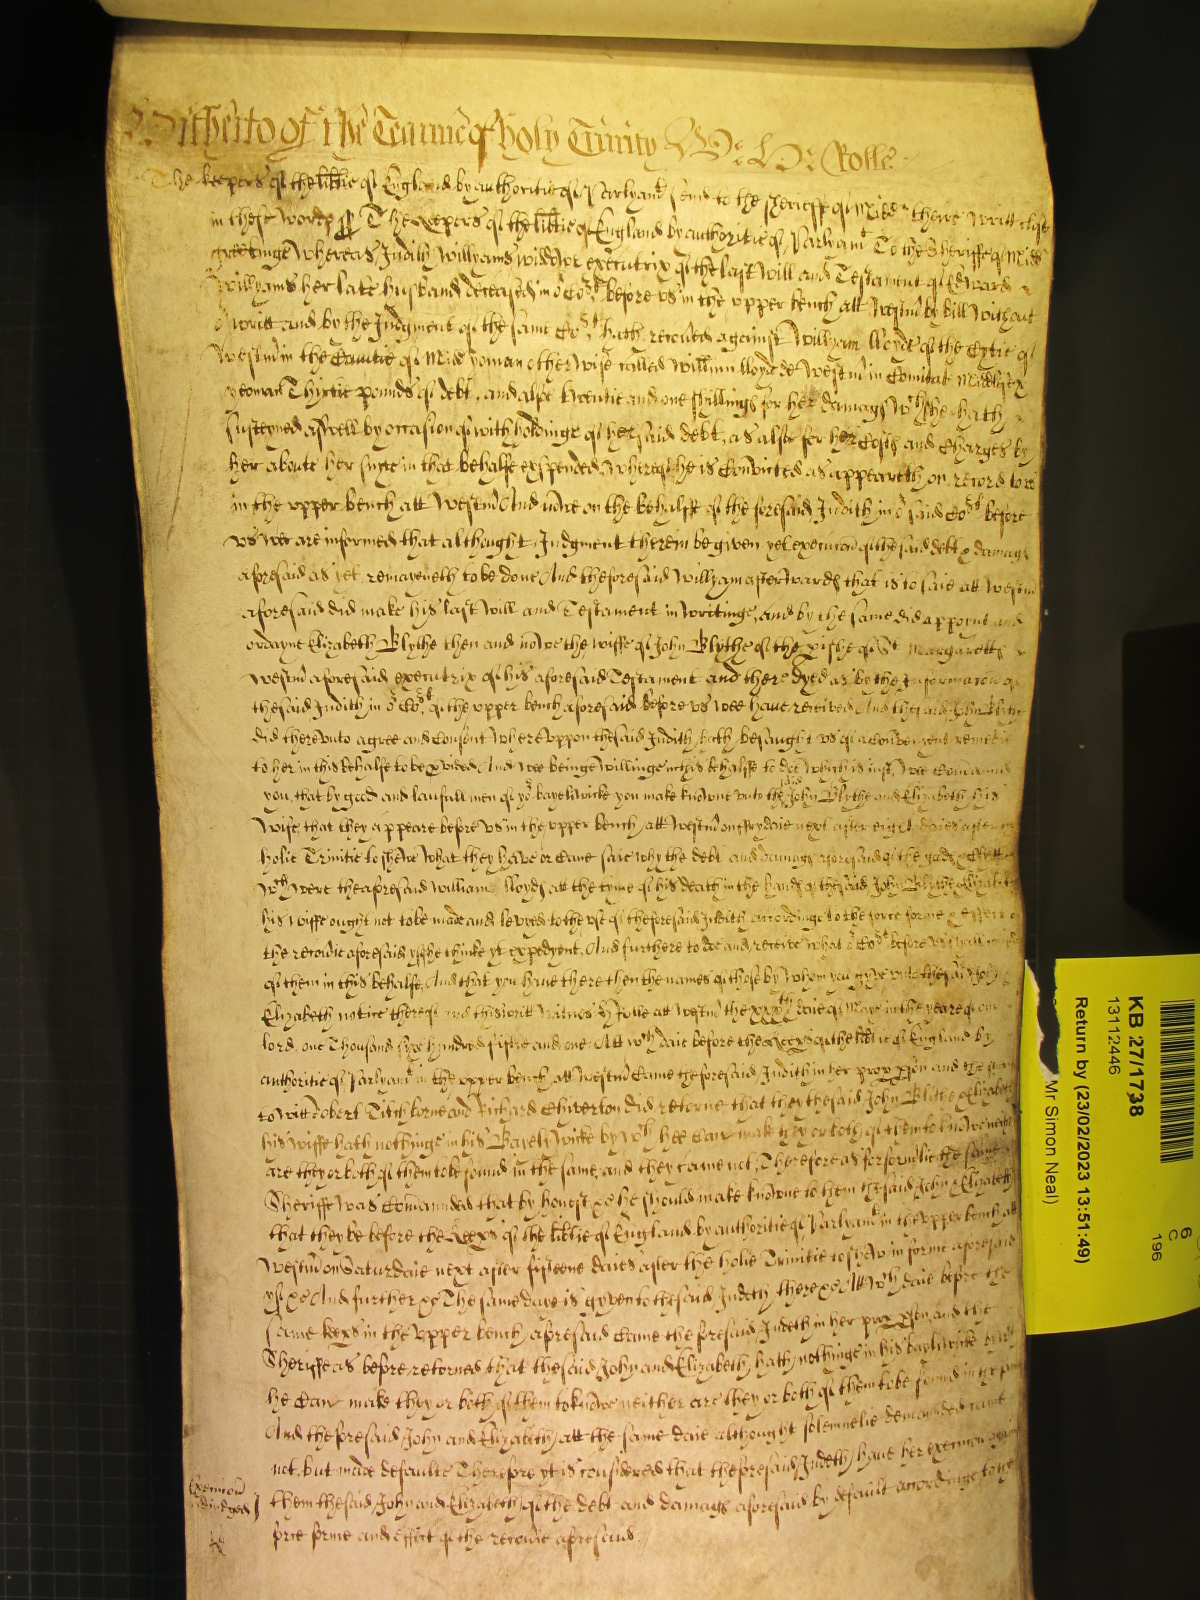 Hitherto of the Tearme of holy Trinity Rolle
The keepers of the libtie of England by authoritie of Parlyamt send to the sheriffe of Midd theire writt close
in these wordes ss The keepers of the libtie of England by authoritie of Parlyamt To the Sheriffe of Midd
greetinge Whereas Judith Willyams widdowe executrix of the last will and Testament of Edward
Willyams her late husband deceased in or Cort before us in the upper bench att Westm by bill without
or writt and by the Judgment of the same Cort hath recoved against Willyam lloyde of the Cytie of
Westm in the Countie of Midd yoman otherwise called William lloyd de Westm in Comitat Middlesex
yeoman Thirtie pounds of debt, and alsoe twentie and one shillings for her damags wch she hath
susteyned aswell by occasion of withholdinge of her said debt, as alsoe for her Costs and Charges by
her aboute her suyte in that behalfe expended, whereof he is Convicted as appeareth on record
in the upper bench att Westm And nowe on the behalfe of the foresaid Judith in or said Cort before
us wee are informed that althought Judgment therein be given yet execucon of the said debt & damags
aforesaid as yet remayneth to be done And the foresaid Willyam afterwards that is to saie att Westm
aforesaid did make his last will and Testament in writinge, and by the same did appoynt and
ordayne Elizabeth Blythe then and nowe the wiffe of John Blythe of the pishe of St Margaretts
Westm aforesaid executrix of his aforesaid Testament and there dyed as by the Informacon of
the said Judith in or Cort of the upper bench aforesaid before us wee have received And the said John Blythe
did thereunto agree and Consent Whereuppon the said Judith hath besaught us of a Convenyent remedie
to her in this behalfe to be pvided And wee beinge willinge in this behalfe to doe which is just, wee Comaund
you, that by good and laufull men of yor bayeliwicke you make knowne unto the said John Blythe and Elizabeth his
wife, that they appeare before us in the upper bench att Westm on ffrydaie next after eight daies after
holie Trinitie to shewe what they have or Cane saie why the debt and damags aforesaid of the goods & Chattells
wch were the aforesaid William lloyds att the tyme of his death in the hands of the said John Blythe & Elizabeth
his wiffe ought not to be made and levied to the use of the foresaid Judith accordinge to the force forme & effect of
the recovie aforesaid yf she thinke yt expedyent, And furthere to doe and receive what or Cort before us
of them in this behalfe, And that you have there then the names of those by whom you gyve unto the said John &
Elizabeth notice thereof and this writt Witnes H Rolle att Westm the xxxth daie of Maye in the yeare of our
lord. one Thousand sixe hundred fiftie and one. Att wch daie before the keeps of the libtie of England by
authoritie of Parlyamt in the upper bench att Westm Came the foresaid Judith in her prop pson and the
to witt Robert Titchborne and Richard Chiverton did retorne that they the said John Blithe & Elizabeth
his wiffe hath nothinge in his Bayeliwicke by wch hee Can make they or both of them to knowe neither
are they or both of them to be found in the same, and they came not, Therefore as for formlie the same
Sheriffe was Comannded that by honest &c he should make knowne to them the said John & Elizabeth
that they be before the keeps of the libtie of England by authoritie of Parlyamt in the upper bench att
Westm on Saturdaie next after fifteene daies after the holie Trinitie to shew in forme aforesaid
yf &c And further &c The same daye is gyven to the said Judeth there &c Att wch daie before the
same keeps in the upper bench aforesaid Came the foresaid Judeth in her prop pson and the
Sheriffe as before retorned that the said John and Elizabeth hath nothinge in his bayliwicke
he Can make they or both of them to knowe neither are they or both of them to be found in the same
And the foresaid John and Elizabeth att the same daie althought solemnelie demaunded came
not, but made defaulte Therefore yt is considered that the foresaid Judeth have her execucon against
them the said John and Elizabeth of the debt and damags aforesaid by default accordinge to the
force forme and effect of the recovie aforesaid
Execucon
adjudged
KB 27/1738
13112446
Return by (23/02/2023 13:51:49)
Mr Simon Neal)
6
C
196